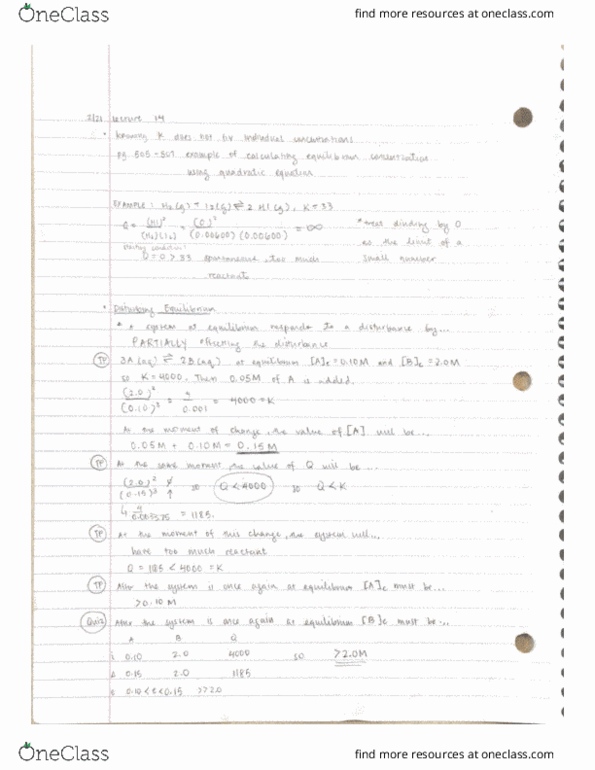 OneClass
find more resources at oneclass.com
2/21 Lecture 14
• knowing K does not fix individual concentrations
pg. 505-507 example of calculating equilibrium concentration
using quadratic equation
EXAMPLE: H₂(g) + I₂(g) ⇌ 2 HI(g), K = 33
Q = (HI)² / (H₂)(I₂) = (0)² / (0.00600)(0.00600) =
dividing by 0
as the limit of a
small number
starting conditions
Q = 0 > 33 spontaneous, too much
reactant
• Disturbing Equilibrium
* A system at equilibrium responds to a disturbance by...
PARTIALLY offsetting the disturbance
TP 3A(aq) ⇌ 2B(aq) at equilibrium [A]ₑ = 0.10M and [B]ₑ = 2.0M
so K = 4000. Then 0.05M of A is added.
(2.0)² / (0.10)³ = 4 / 0.001 = 4000 = K
At the moment of change, the value of [A] will be...
0.05M + 0.10M = 0.15M
TP At the same moment the value of Q will be...
(2.0)² / (0.15)³ so Q < 4000 so Q < K
↳ 4 / 0.003375 = 1185.
TP At the moment of this change, the system will...
have too much reactant
Q = 1185 < 4000 = K
TP After the system is once again at equilibrium [A]ₑ must be...
> 0.10 M
Quiz After the system is once again at equilibrium [B]ₑ must be...
A B Q
i. 0.10 2.0 4000 so > 2.0M
0.15 2.0 1185
0.10 < ? < 0.15 > 2.0
OneClass
find more resources at oneclass.com